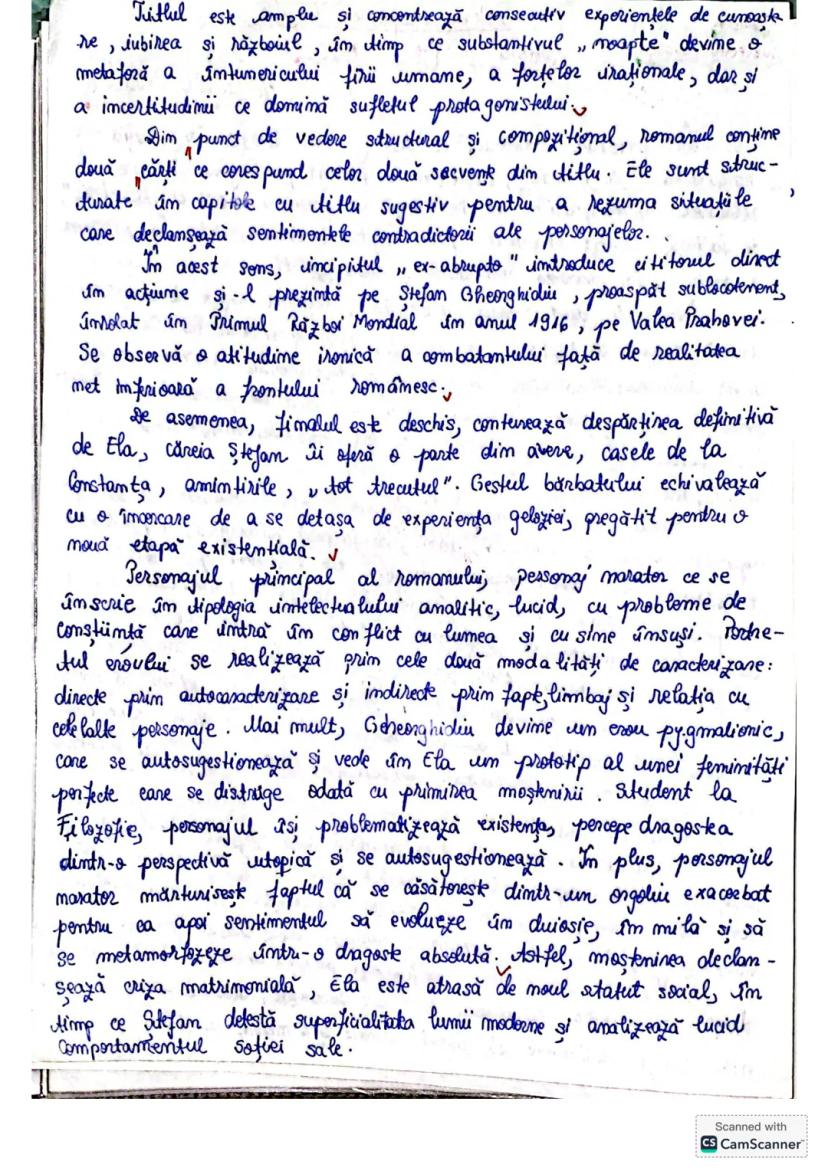 Titlul este amplu și concentrează consecutiv experiențele de cunoaște-
re, iubirea și războiul, în timp ce substantivul „noapte" devine o
metaforă a întunericului firii umane, a forțelor iraționale, dar și
a incertitudinii ce domină sufletul protagonistului.
Din punct de vedere structural și compozițional, romanul conține
două „cărți ce corespund celor două secvențe din titlu. Ele sunt struc-
turate în capitole cu titlu sugestiv pentru a rezuma situațiile
care declanșează sentimentele contradictorii ale personajelor.
În acest sens, incipitul „ex-abrupto" introduce cititorul direct
în acțiune și-l prezintă pe Ștefan Gheorghidiu, proaspăt sublocotenent,
înrolat în Primul Război Mondial în anul 1916, pe Valea Prahovei.
Se observă o atitudine ironică a combatantului față de realitatea
net inferioară a frontului românesc.
De asemenea, finalul este deschis, conturează despărțirea definitivă
de Ela, căreia Ștefan îi oferă o parte din avere, casele de la
Constanța, amintirile, „tot trecutul". Gestul bărbatului echivalează
cu o încercare de a se detașa de experiența geloziei, pregătit pentru o
nouă etapă existențială.
Personajul principal al romanului, personaj narator ce se
înscrie în tipologia intelectualului analitic, lucid, cu probleme de
conștiință care intră în conflict cu lumea și cu sine însuși. Portre-
tul eroului se realizează prin cele două modalități de caracterizare:
directe prin autocaracterizare și indirecte prin fapte, limbaj și relația cu
celelalte personaje. Mai mult, Gheorghidiu devine un erou pygmalionic,
care se autosugestionează și vede în Ela un prototip al unei feminități
perfecte care se distruge odată cu primirea moștenirii. Student la
Filozofie, personajul își problematizează existența, percepe dragostea
dintr-o perspectivă utopică și se autosugestionează. În plus, personajul
narator mărturisește faptul că se căsătorește dintr-un orgoliu exacerbat
pentru ca apoi sentimentul să evolueze în duioșie, în milă și să
se metamorfozeze într-o dragoste absolută. Astfel, moștenirea declan-
șează criza matrimonială, Ela este atrasă de noul statut social, în
timp ce Ștefan detestă superficialitatea lumii moderne și analizează lucid
comportamentul soției sale.
Scanned with
CS CamScanner